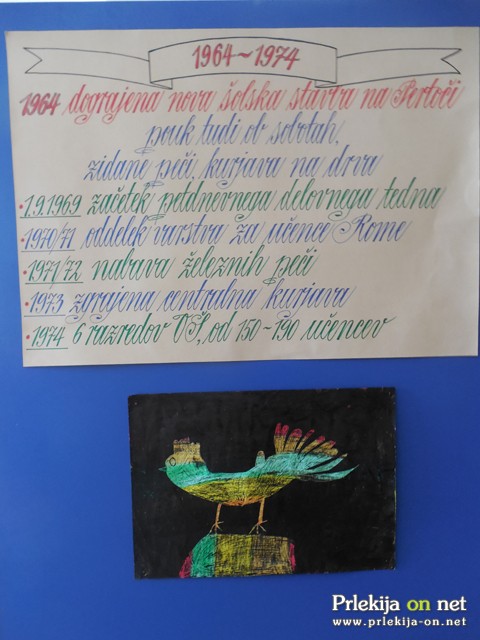 1964~1974
1964 dograjena nova šolska stavba na Pertoči
pouk tudi ob sobotah,
zidane peči, kurjava na drva
• 1.9.1969 začetek petdnevnega delovnega tedna
• 1970/71 oddelek varstva za učence Rome
• 1971/72 nabava železnih peči
• 1973 zgrajena centralna kurjava
• 1974 6 razredov OŠ, od 150-190 učencov
Prlekija on net
www.prlekija-on.net